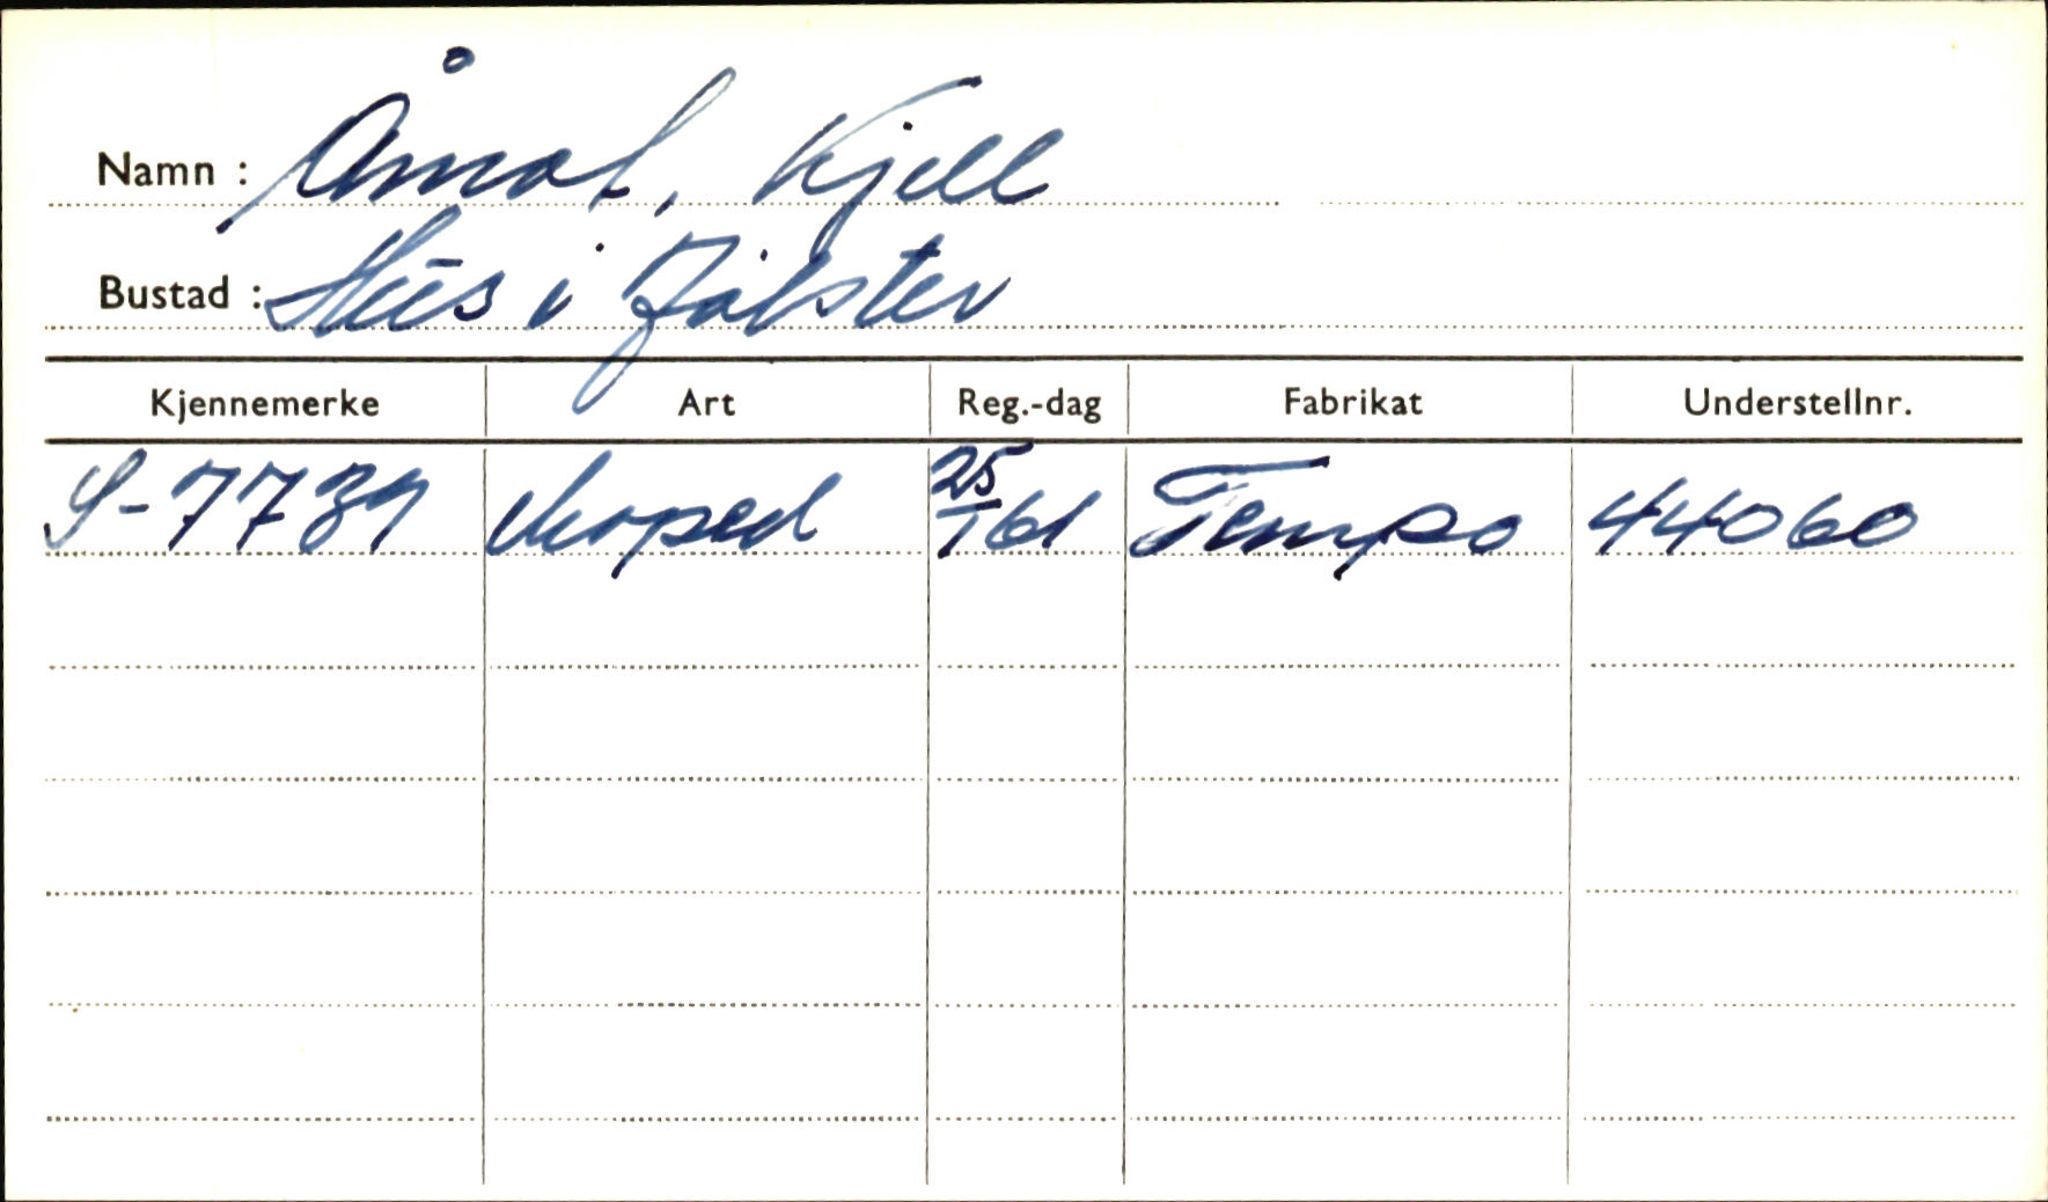 Namn : Åmot, Kjell
Bustad : Hus i Jølster
Kjennemerke Art Reg.-dag Fabrikat Understellnr.
S-7739 Moped 25/1 61 Tempo 44060